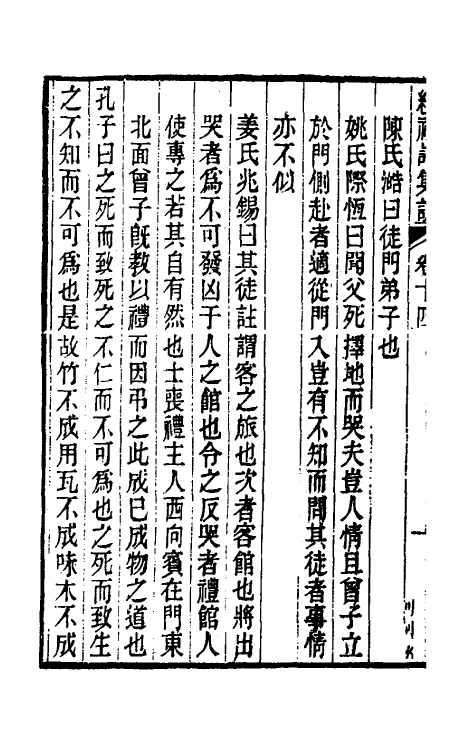 陳氏澔曰徒門弟子也
姚氏際恆曰聞父死擇地而哭夫豈人情且曾子立
於門側赴者適從門入豈有不知而問其徒者事情
亦不似
姜氏兆錫曰其徒註謂客之旅也次者客館也將出
哭者爲不可發凶于人之館也令之反哭者禮館人
使專之若其自有然也士喪禮主人西向賓在門東
北面曾子旣教以禮而因弔之此成已成物之道也
孔子曰之死而致死之不仁而不可爲也之死而致生
之不知而不可爲也是故竹不成用瓦不成味木不成
卷十四